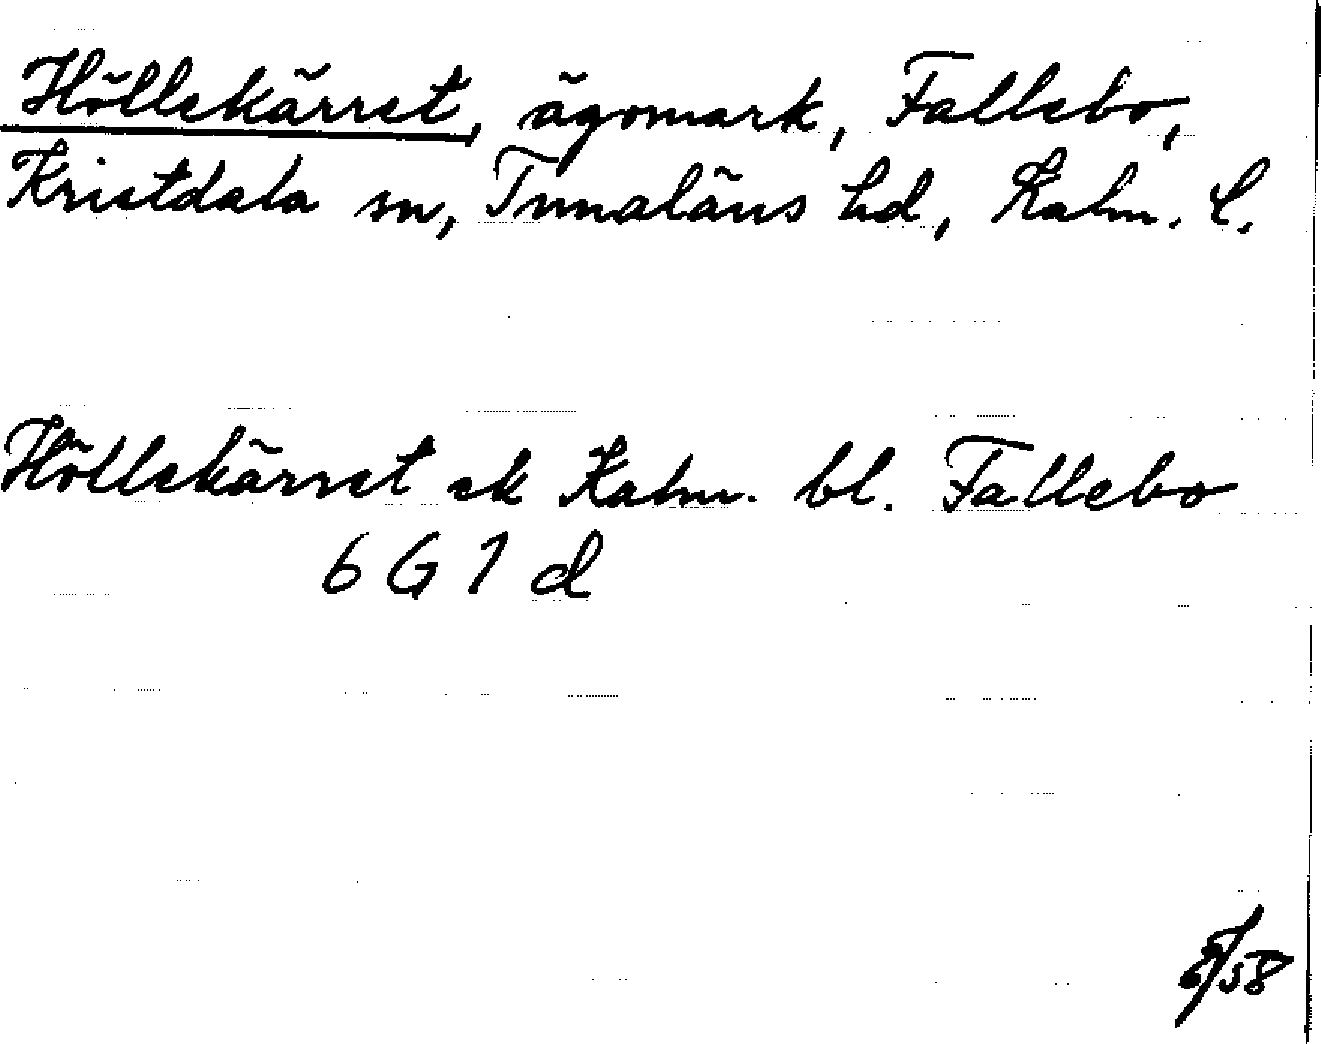 Höllekärret, ägomark, Fallebo,
Kristdala sn, Tunaläns hd, Kalm. l.
Höllekärret ek Kalm. bl. Fallebo
6 G 1 d